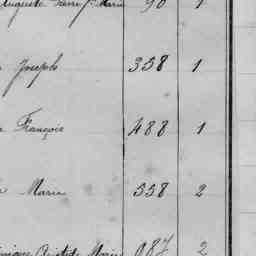 Auguste Pierre Marie 90 1
Joseph 358 1
François 488 1
Marie 558 2
Aristide Marie 987 2